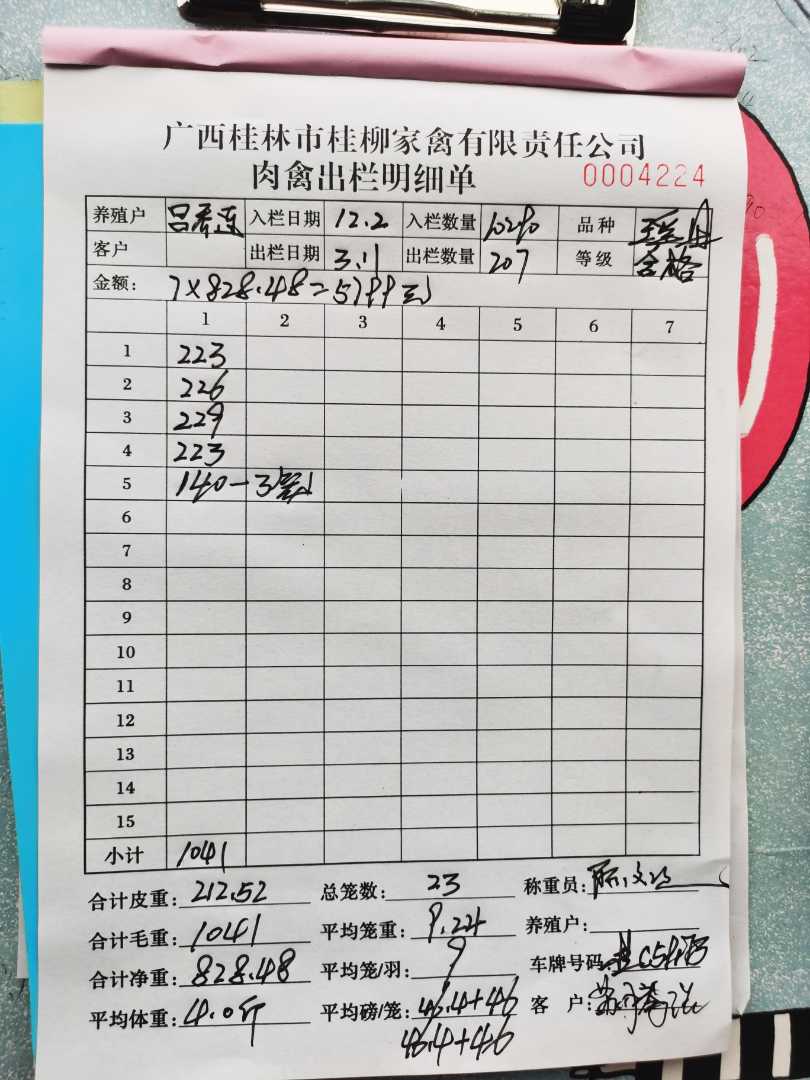 广西桂林市桂柳家禽有限责任公司
肉禽出栏明细单 0004224
养殖户 吕 连 入栏日期 12.2 入栏数量 10290 品种
客户 出栏日期 3.11 出栏数量 207 等级 合格
金额: 7×828.48=5799元
1 2 3 4 5 6 7
1 223
2 226
3 229
4 223
5 140-3笼
6
7
8
9
10
11
12
13
14
15
小计 1041
合计皮重: 212.52 总笼数: 23 称重员:
合计毛重: 1041 平均笼重: 9.24 养殖户:
合计净重: 828.48 平均笼/羽: 9 车牌号码
平均体重: 4.0斤 平均磅/笼: 46.4+46 客 户:
46.4+46